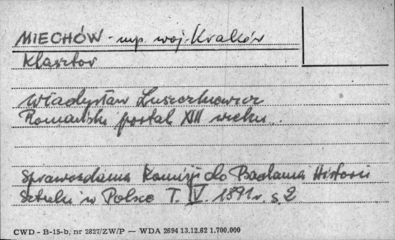 MIECHÓW - mp. woj. Kraków
Klasztor
Władysław Łuszczkiewicz
Romański portal XIII wieku.
Sprawozdania Komisji do Badania Historii
Sztuki w Polsce T. IV. 1891 r. s. 2
CWD - B-15-b, nr 2827/ZW/P — WDA 2694 13.12.62 1.700.000